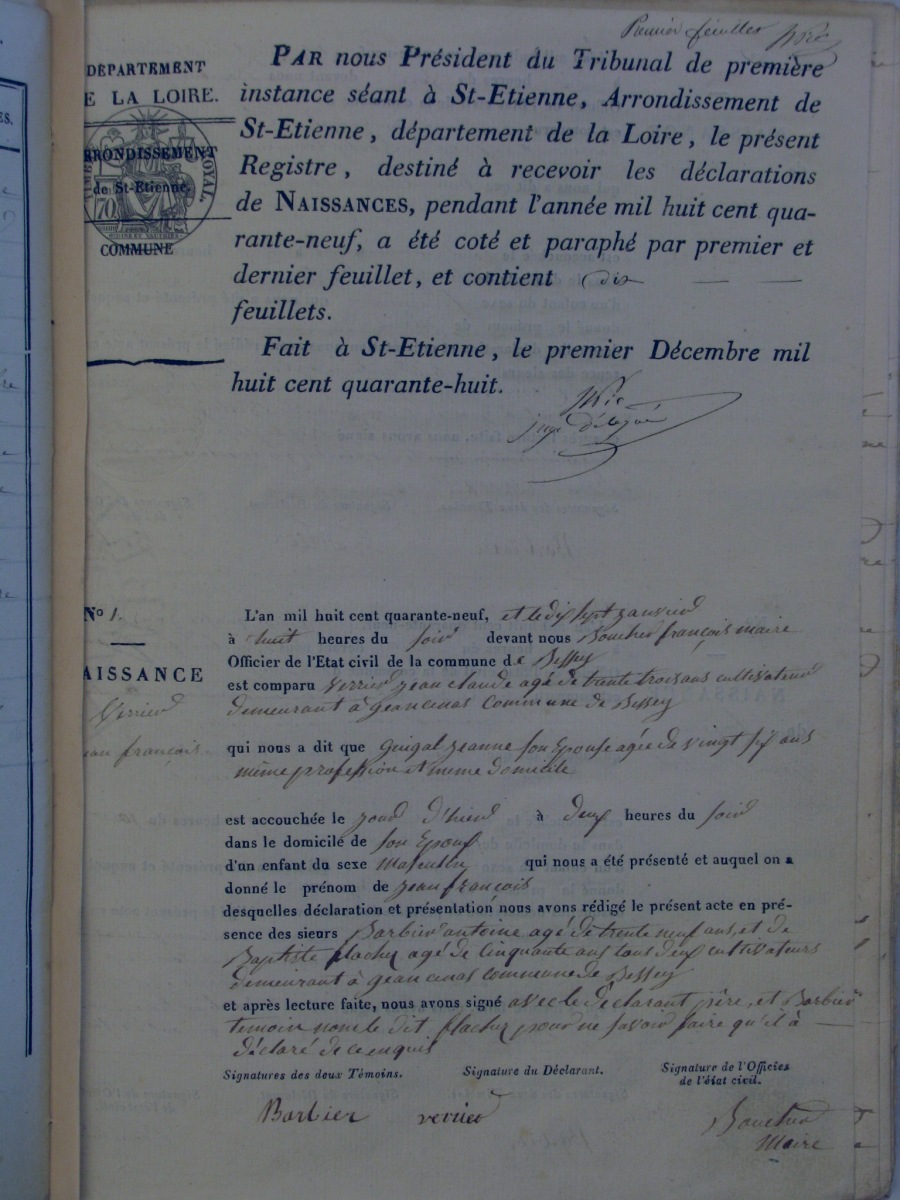 Premier feuillet
DÉPARTEMENT
E LA LOIRE.
ARRONDISSEMENT
de St-Etienne.
ROYAL.
70
COMMUNE
PAR nous Président du Tribunal de première
instance séant à St-Etienne, Arrondissement de
St-Etienne, département de la Loire, le présent
Registre, destiné à recevoir les déclarations
de NAISSANCES, pendant l'année mil huit cent qua-
rante-neuf, a été coté et paraphé par premier et
dernier feuillet, et contient dix — —
feuillets.
Fait à St-Etienne, le premier Décembre mil
huit cent quarante-huit.
juge délégué
No 1.
AISSANCE
Verrier
ean françois
L'an mil huit cent quarante-neuf, et le dix sept janvier
à huit heures du soir devant nous Boucher françois maire
Officier de l'Etat civil de la commune de Bessey
est comparu verrier jean claude agé de trente trois ans cultivateur
demeurant à geancenas commune de Bessey
qui nous a dit que jeanne son Epouse agée de vingt six ans
même profession et meme domicile
est accouchée le jour d'hier à deux heures du soir
dans le domicile de son Epoux
d'un enfant du sexe masculin qui nous a été présenté et auquel on a
donné le prénom de jean françois
desquelles déclaration et présentation nous avons rédigé le présent acte en pré-
sence des sieurs Barbier antoine agé de trente neuf ans, et de
Baptiste flachy agé de cinquante ans tous deux cultivateurs
demeurant à geancenas commune de Bessey
et après lecture faite, nous avons signé avec le déclarant père, et Barbier
temoin non le dit flachy pour ne savoir faire qu'il à —
déclaré de ce enquis
Signatures des deux Témoins. Signature du Déclarant. Signature de l'Officier
de l'état civil.
Barbier verrier Boucher
Maire